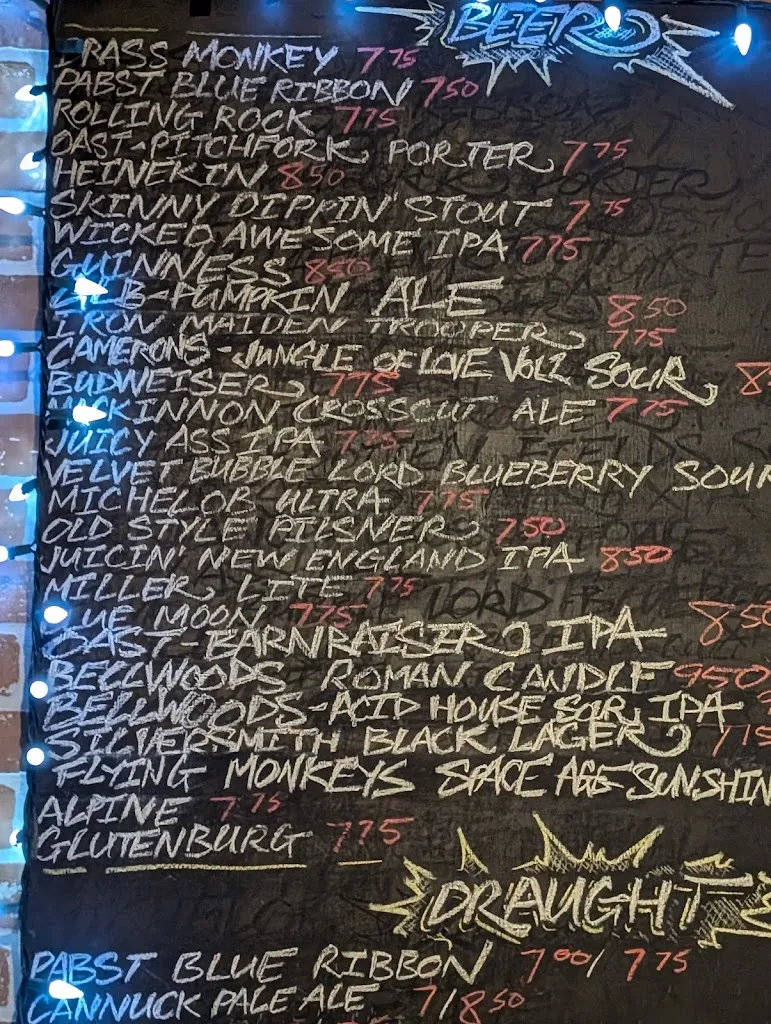 BEER
BRASS MONKEY 7 75
PABST BLUE RIBBON 7 50
ROLLING ROCK 7 75
OAST-PITCHFORK PORTER 7 75
HEINEKIN 8 50
SKINNY DIPPIN' STOUT 7 75
WICKED AWESOME IPA 7 75
GUINNESS 8 50
PUMPKIN ALE 8 50
IRON MAIDEN TROOPER 7 75
CAMERONS-JUNGLE OF LOVE VOL2 SOUR
BUDWEISER 7 75
MACKINNON CROSSCUT ALE 7 75
JUICY ASS IPA 7 75
VELVET BUBBLE LORD BLUEBERRY SOUR
MICHELOB ULTRA 7 75
OLD STYLE PILSNER 7 50
JUICIN' NEW ENGLAND IPA 8 50
MILLER LITE 7 75
BLUE MOON 7 75
OAST-BARNRAISER IPA 8 50
BELLWOODS ROMAN CANDLE 9 50
BELLWOODS-ACID HOUSE SOUR IPA
SILVERSMITH BLACK LAGER
FLYING MONKEYS SPACE AGE SUNSHIN
ALPINE 7 75
GLUTENBURG 7 75
DRAUGHT
PABST BLUE RIBBON 7 00/ 7 75
CANNUCK PALE ALE 7/8 50